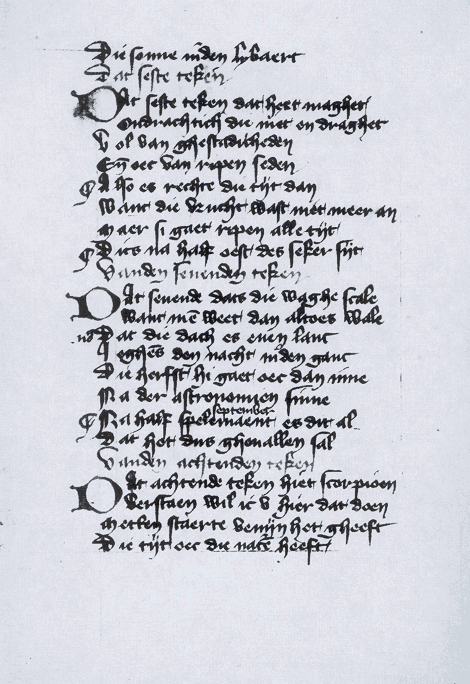 Die sonne inden lybaert
Dat seste teken
Dat seste teken dat heet maghet
Ondrachtich die niet en draghet
Vol van ghestadicheden
Eñ oec van ripen seden
Also es rechte die tijt dan
Want die vrucht wast niet meer an
Maer si gaet ripen alle tijt
Dits na half oest des seker sijt
Vanden seuenden teken
Dat seuende dats die waghe scale
Want mē weet dan altoes wale
Dat die dach es euen lanc
Ieghēs den nacht inden ganc
Die herfst hi gaet oec dan inne
Na der astronomien sinne
september
Na half spelmaent es dit al
Dat het dus gheuallen sal
Vanden achtenden teken
Dat achtende teken hiet scorpioen
Verstaen wil ic v hier dat doen
Metten staerte venijn het gheeft
Die tijt oec die natē heeft